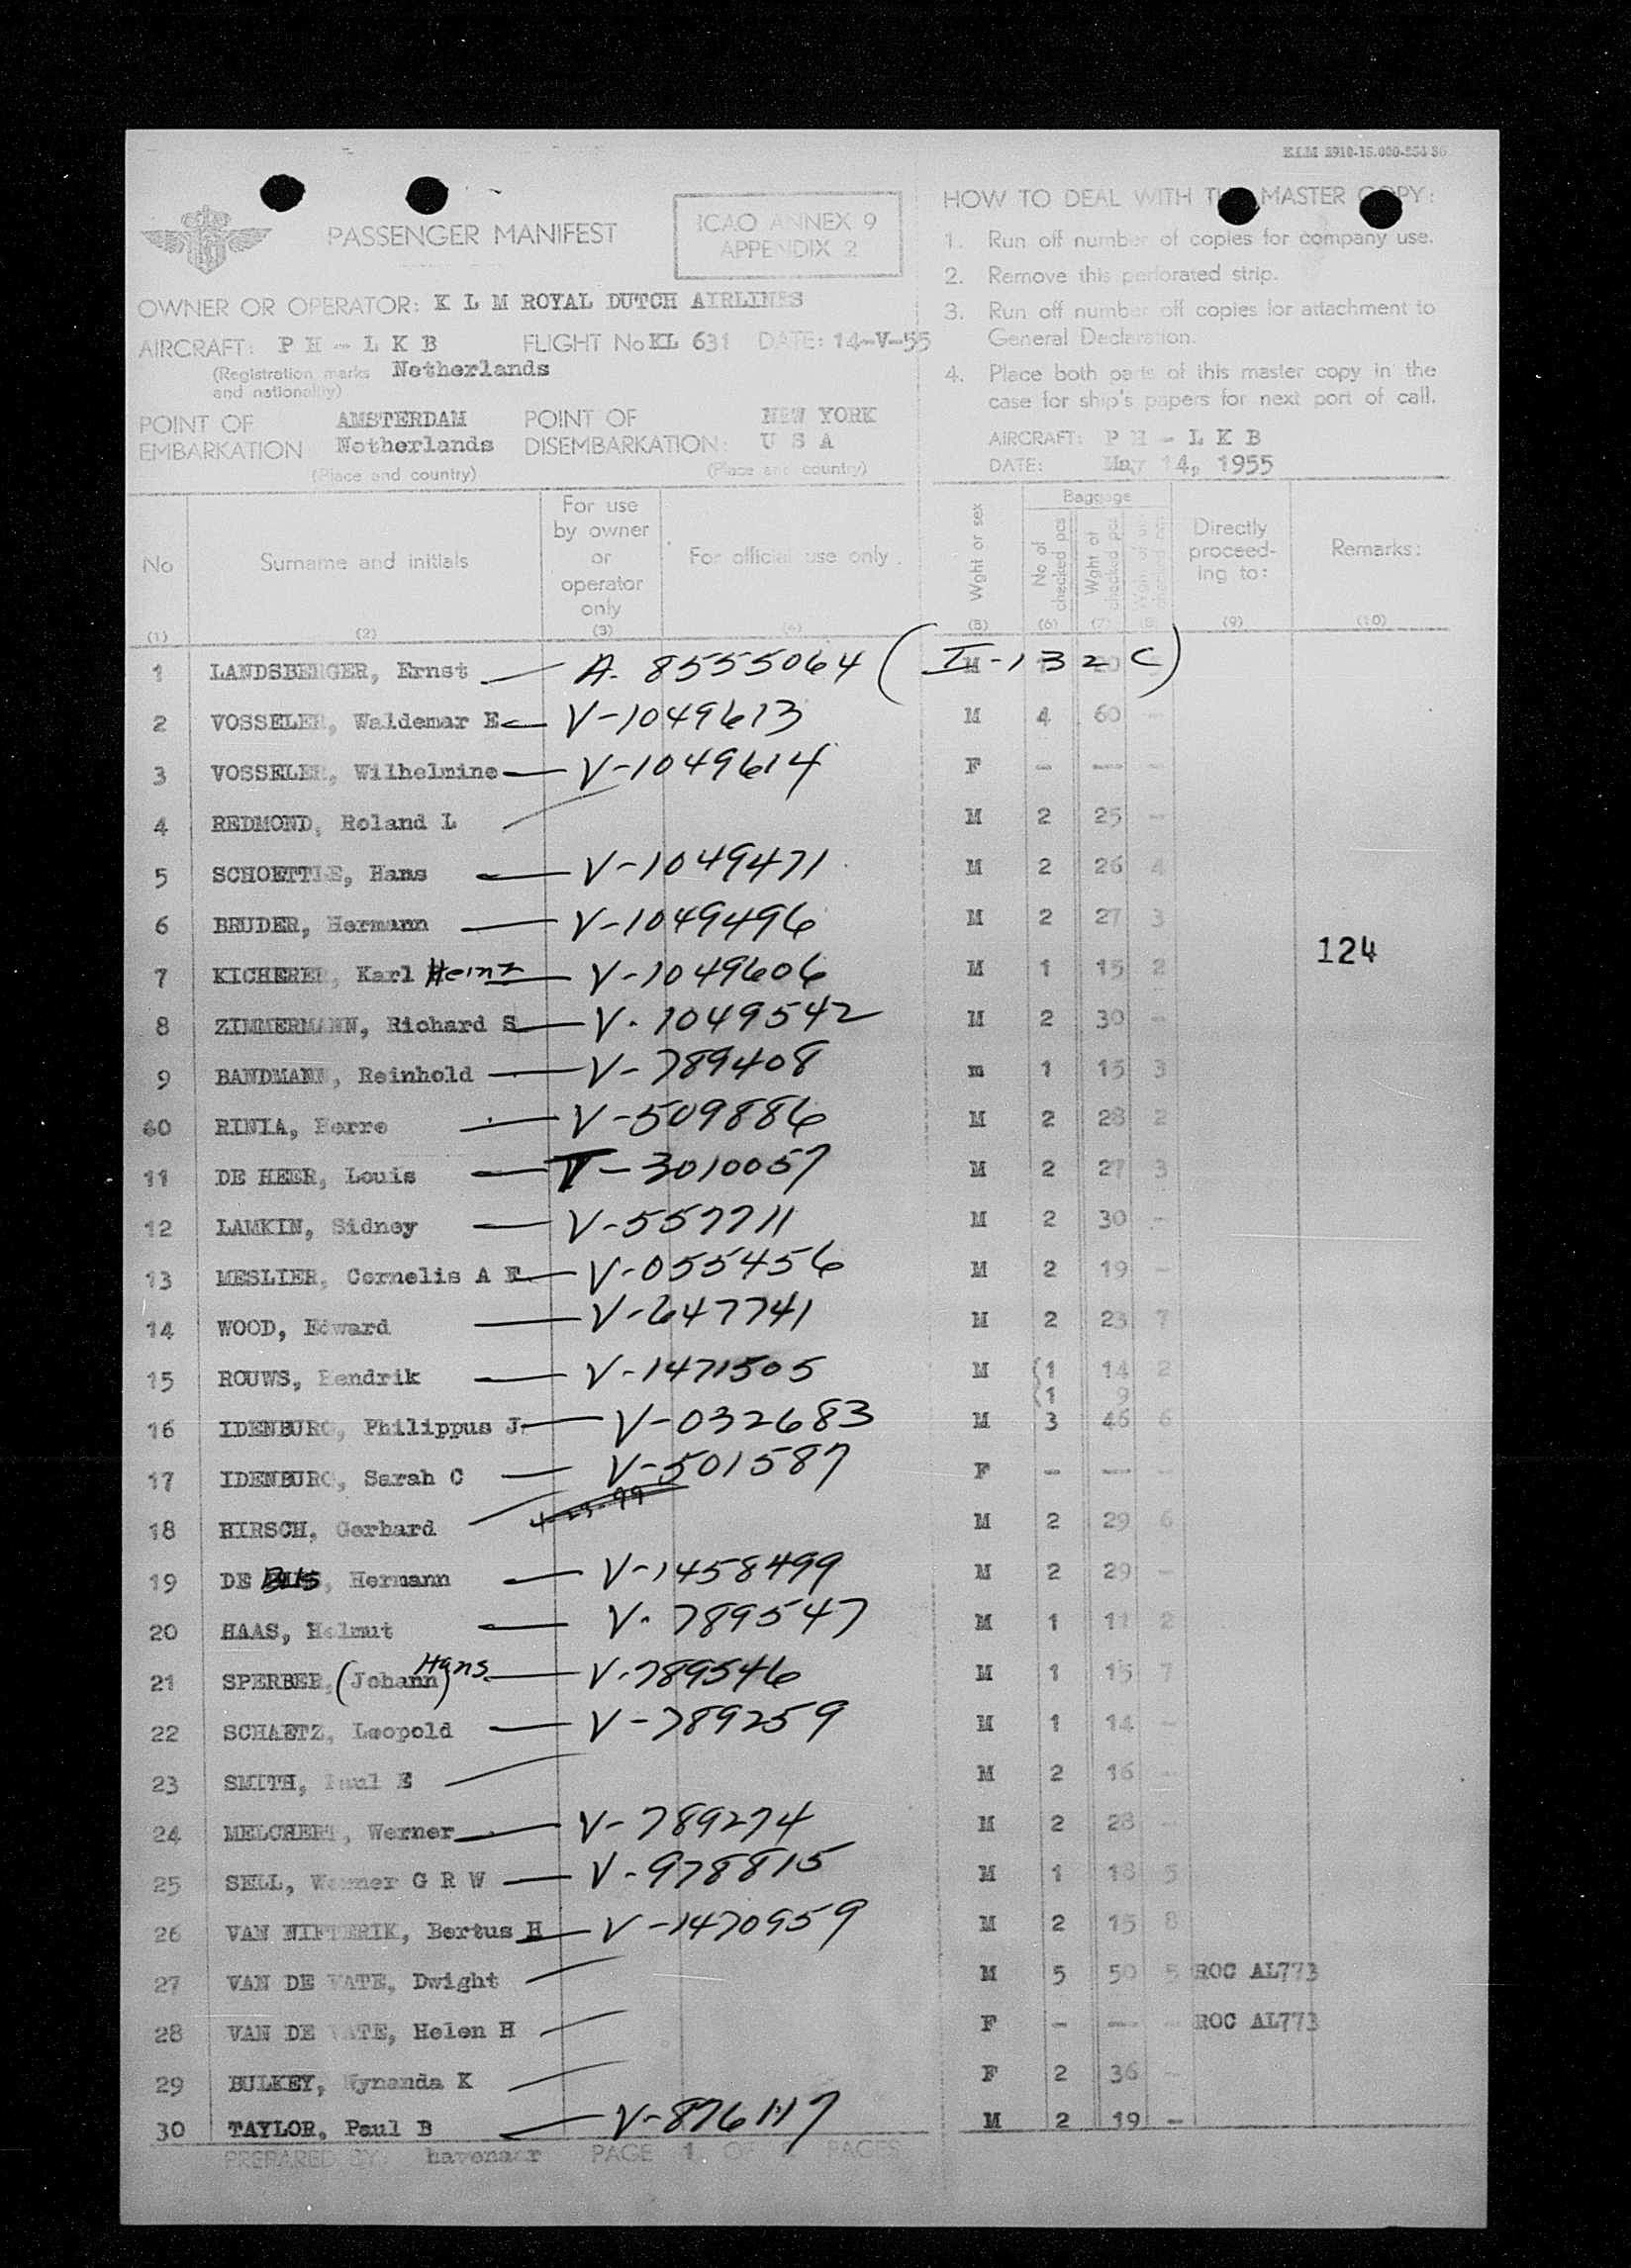 KLM 2910-15.000-554 36
PASSENGER MANIFEST
ICAO ANNEX 9
APPENDIX 2
OWNER OR OPERATOR: K L M ROYAL DUTCH AIRLINES
AIRCRAFT: P H - L K B FLIGHT No KL 631 DATE: 14-V-55
(Registration marks Netherlands
and nationality)
POINT OF AMSTERDAM POINT OF NEW YORK
EMBARKATION Netherlands DISEMBARKATION: U S A
(Place and country) (Place and country)
HOW TO DEAL WITH THE MASTER COPY:
1. Run off number of copies for company use.
2. Remove this perforated strip.
3. Run off number off copies for attachment to
General Declaration.
4. Place both parts of this master copy in the
case for ship's papers for next port of call.
AIRCRAFT: P H - L K B
DATE: May 14, 1955
No Surname and initials For use by owner or operator only For official use only. Wght or sex Baggage No of checked pcs Wght of checked pcs Directly proceed-ing to: Remarks:
(1) (2) (3) (4) (5) (6) (7) (8) (9) (10)
1 LANDSBERGER, Ernst — A. 8555064 (I-132 C) M 1 20
2 VOSSELER, Waldemar E — V-1049613 M 4 60 -
3 VOSSELER, Wilhelmine — V-1049614 F - -- -
4 REDMOND, Roland L M 2 25 -
5 SCHOETTLE, Hans — V-1049471 M 2 26 4
6 BRUDER, Hermann — V-1049496 M 2 27 3
7 KICHERER, Karl Heinz — V-1049606 M 1 15 2
8 ZIMMERMANN, Richard S — V. 1049542 M 2 30 -
9 BANDMANN, Reinhold — V-789408 m 1 15 3
60 RINIA, Herre — V-509886 M 2 28 2
11 DE HEER, Louis — V-3010057 M 2 27 3
12 LAMKIN, Sidney — V-557711 M 2 30 -
13 MESLIER, Cornelis A F — V-055456 M 2 19 -
14 WOOD, Edward — V-647741 M 2 23 7
15 ROUWS, Hendrik — V-1471505 M (1 14 2
(1 9
16 IDENBURG, Philippus J — V-032683 M 3 46 6
17 IDENBURG, Sarah C — V-501587 F - -- -
18 HIRSCH, Gerhard M 2 29 6
19 DE , Hermann — V-1458499 M 2 29 -
20 HAAS, Helmut — V. 789547 M 1 11 2
21 SPERBER, (Johann) Hans — V-789546 M 1 15 7
22 SCHAETZ, Leopold — V-789259 M 1 14 -
23 SMITH, Paul E M 2 16 -
24 MELCHERT, Werner — V-789274 M 2 28 -
25 SELL, Werner G R W — V-978815 M 1 18 5
26 VAN NIFTERIK, Bertus H — V-1470959 M 2 15 8
27 VAN DE VATE, Dwight M 5 50 5 ROC AL773
28 VAN DE VATE, Helen H F - -- - ROC AL773
29 BULKEY, Wynanda K F 2 36 -
30 TAYLOR, Paul B — V-876117 M 2 19 -
124
PREPARED BY: havenaar PAGE 1 OF 2 PAGES